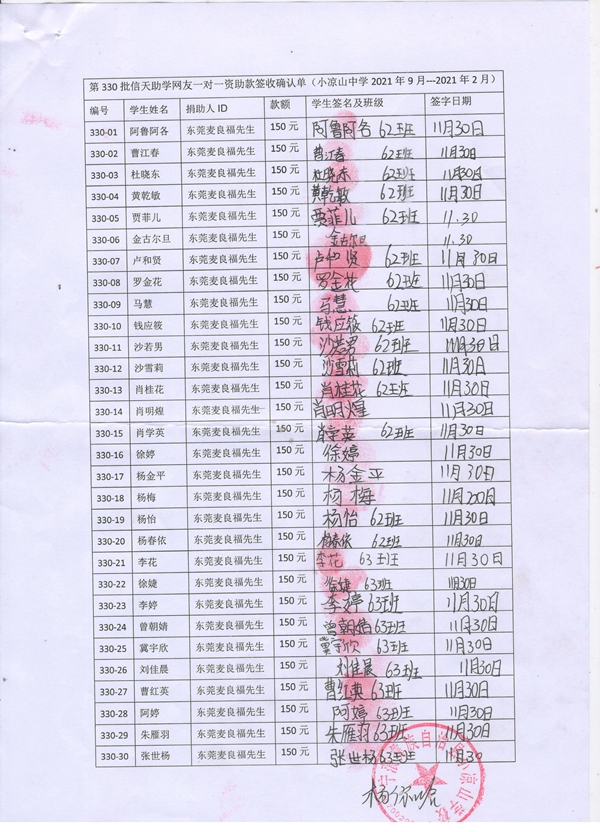 第 330 批信天助学网友一对一资助款签收确认单（小凉山中学 2021 年 9 月---2021 年 2 月）
编号 学生姓名 捐助人 ID 款额 学生签名及班级 签字日期
330-01 阿鲁阿各 东莞麦良福先生 150 元 阿鲁阿各 62班 11月30日
330-02 曹江春 东莞麦良福先生 150 元 曹江春 62班 11月30日
330-03 杜晓东 东莞麦良福先生 150 元 杜晓东 62班 11月30日
330-04 黄乾敏 东莞麦良福先生 150 元 黄乾敏 62班 11月30日
330-05 贾菲儿 东莞麦良福先生 150 元 贾菲儿 62班 11.30
330-06 金古尔旦 东莞麦良福先生 150 元 金古尔旦 11.30
330-07 卢和贤 东莞麦良福先生 150 元 卢和贤 62班 11月30日
330-08 罗金花 东莞麦良福先生 150 元 罗金花 62班 11月30日
330-09 马慧 东莞麦良福先生 150 元 马慧 62班 11月30日
330-10 钱应筱 东莞麦良福先生 150 元 钱应筱 62班 11月30日
330-11 沙若男 东莞麦良福先生 150 元 沙若男 62班 11月30日
330-12 沙雪莉 东莞麦良福先生 150 元 沙雪莉 62班 11月30日
330-13 肖桂花 东莞麦良福先生 150 元 肖桂花 62班 11月30日
330-14 肖明煌 东莞麦良福先生 150 元 肖明煌 11月30日
330-15 肖学英 东莞麦良福先生 150 元 肖学英 62班 11月30日
330-16 徐婷 东莞麦良福先生 150 元 徐婷 11月30日
330-17 杨金平 东莞麦良福先生 150 元 杨金平 11月30日
330-18 杨梅 东莞麦良福先生 150 元 杨梅 11月
330-19 杨怡 东莞麦良福先生 150 元 杨怡 62班 11月30日
330-20 杨春依 东莞麦良福先生 150 元 杨春依 62班 11月30日
330-21 李花 东莞麦良福先生 150 元 李花 63班 11月30日
330-22 徐婕 东莞麦良福先生 150 元 徐婕 63班 11月30日
330-23 李婷 东莞麦良福先生 150 元 李婷 63班 11月30日
330-24 曾朝婧 东莞麦良福先生 150 元 曾朝婧 63班 11月30日
330-25 冀宇欣 东莞麦良福先生 150 元 冀宇欣 63班 11月30日
330-26 刘佳晨 东莞麦良福先生 150 元 刘佳晨 63班 11月30日
330-27 曹红英 东莞麦良福先生 150 元 曹红英 63班 11月30日
330-28 阿婷 东莞麦良福先生 150 元 阿婷 63班 11月30日
330-29 朱雁羽 东莞麦良福先生 150 元 朱雁羽 63班 11月30日
330-30 张世杨 东莞麦良福先生 150 元 张世杨 63班 11月30